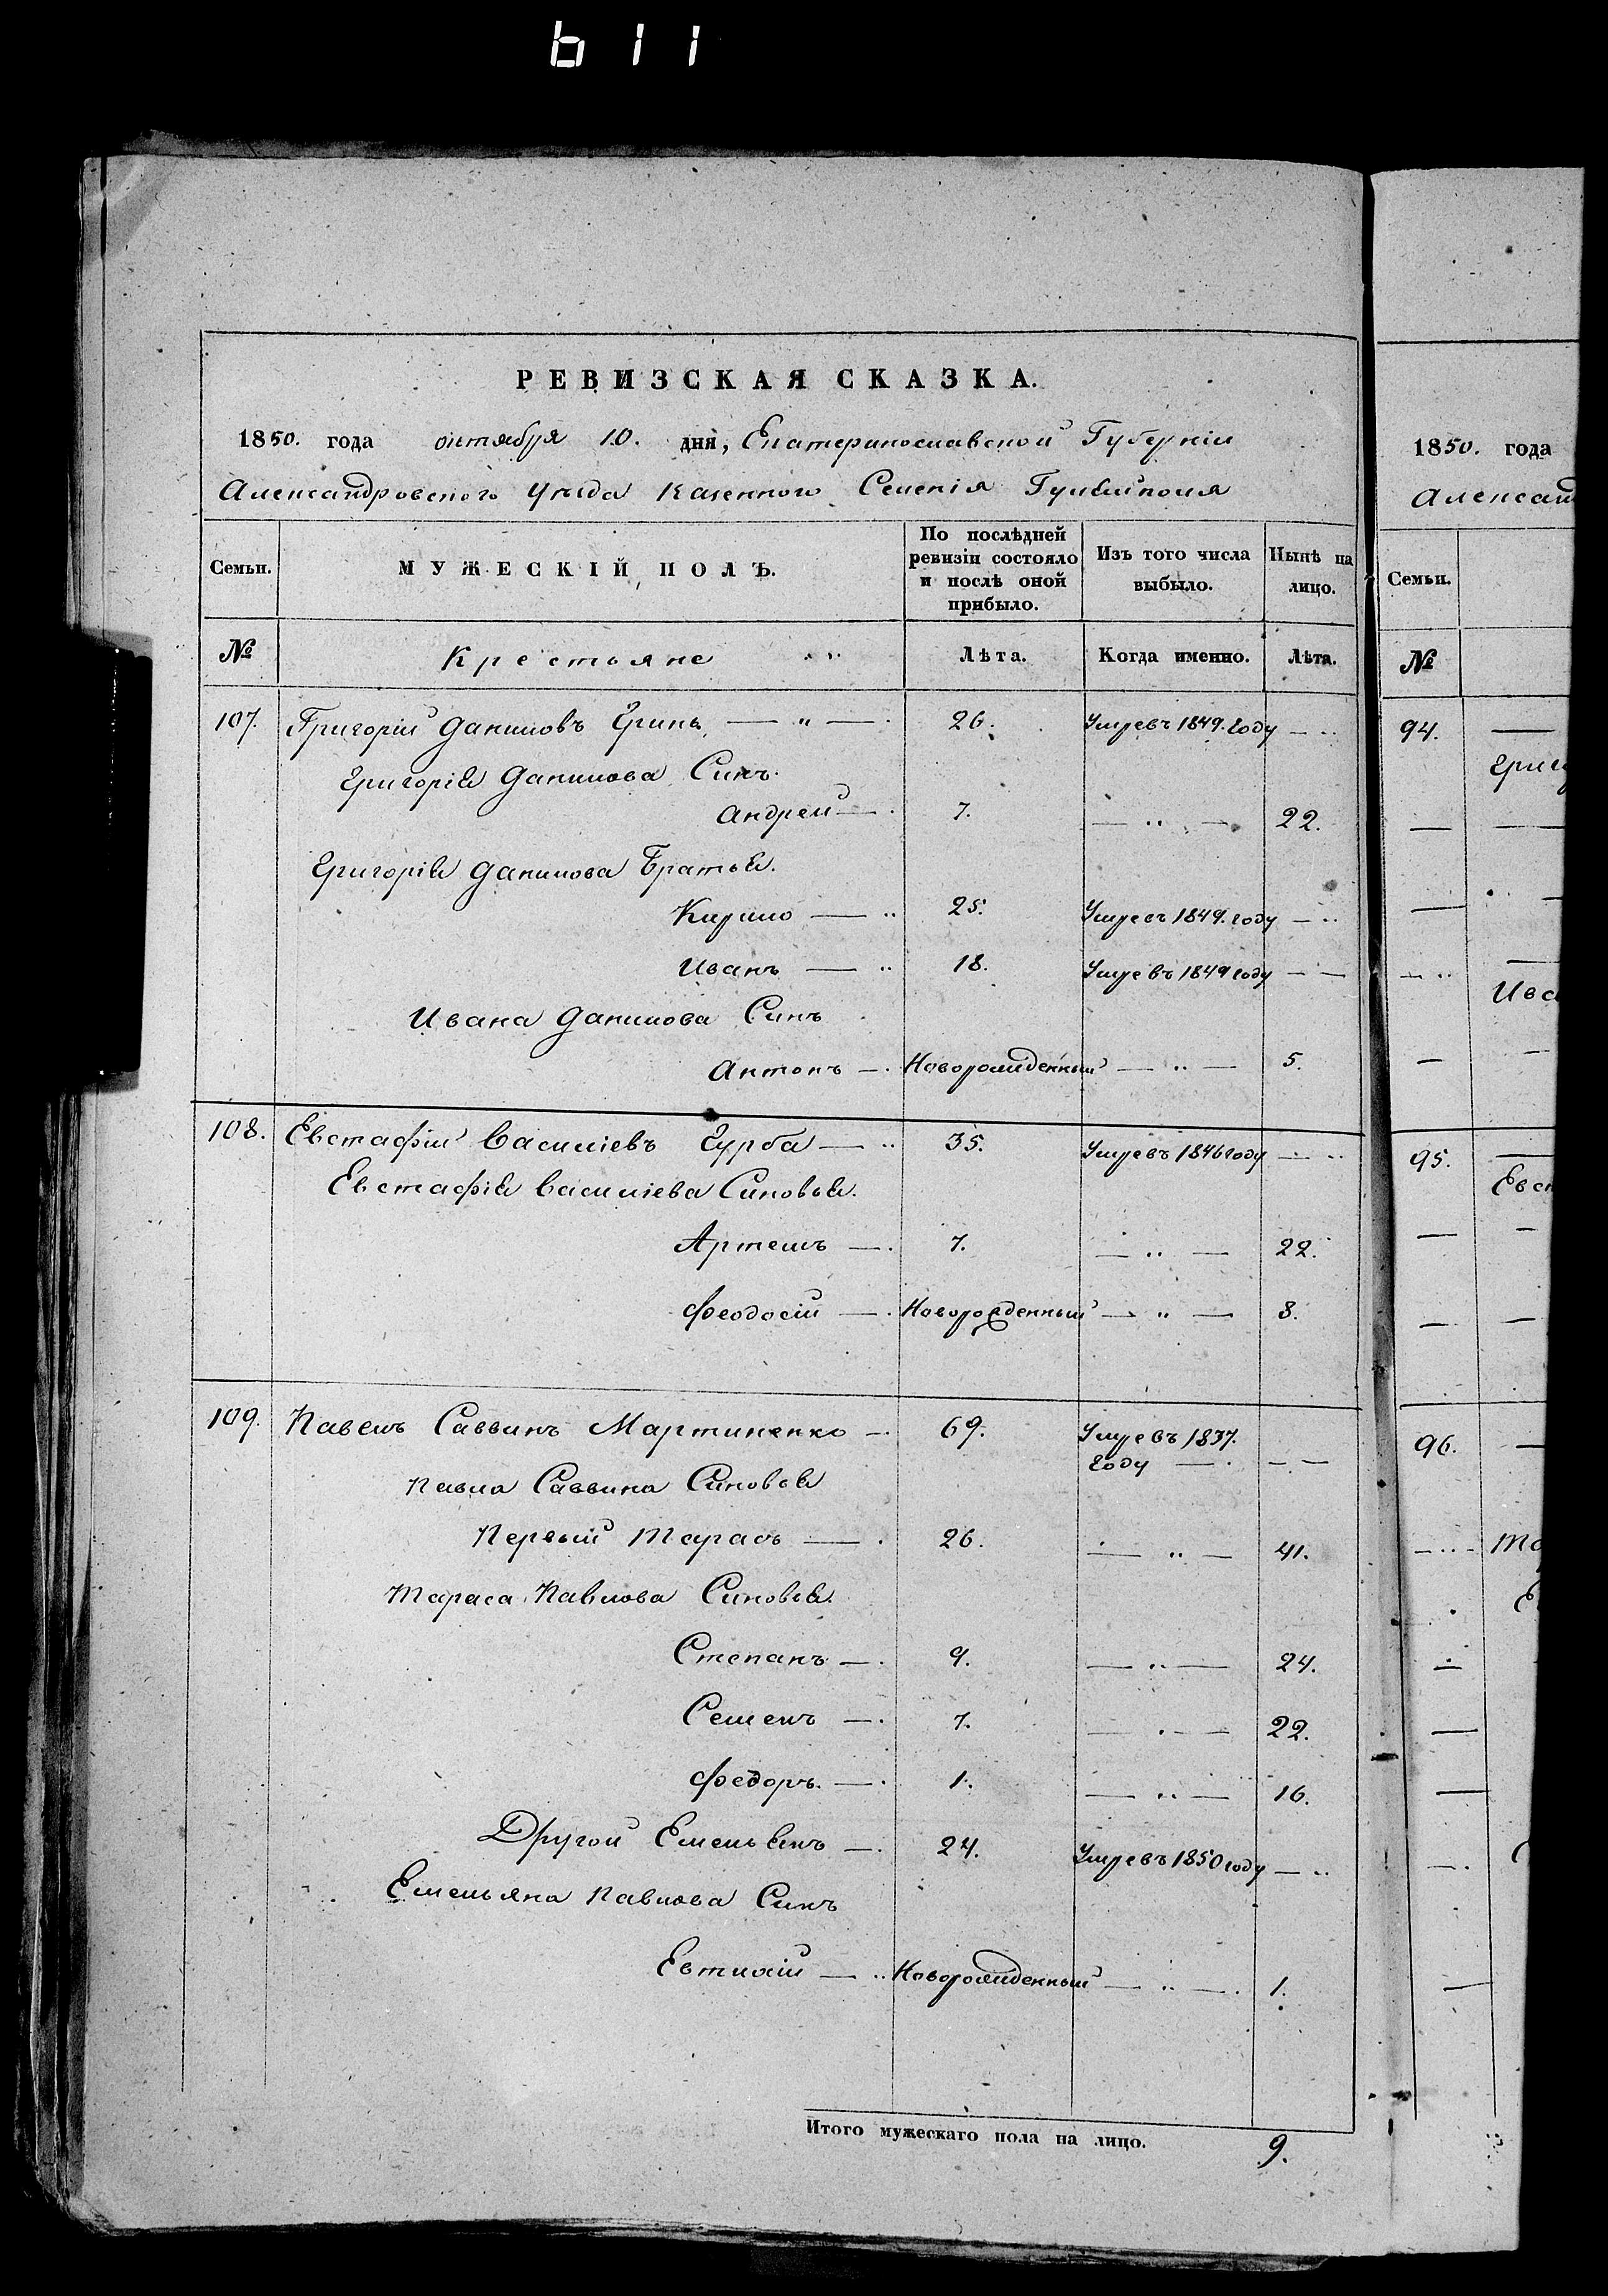 b11
РЕВИЗСКАЯ СКАЗКА.
1850. года октября 10. дня, Екатеринославской Губерніи
Александровского Уѣзда Казенного Селенія Гуляйполя
Семьи. МУЖЕСКІЙ ПОЛЪ. По послѣдней ревизіи состояло и послѣ оной прибыло. Изъ того числа выбыло. Нынѣ на лицо.
№ Крестьяне Лѣта. Когда именно. Лѣта.
107. Григорій Даниловъ Гринь — " — 26. Умре въ 1849. году — ..
Григорія Данилова Синъ
Андрей — 7. — .. — 22.
Григорія Данилова Братья.
Кирило — .. 25. Умре въ 1849. году — ..
Иванъ — .. 18. Умре въ 1849 году — —
Ивана Данилова Синъ
Антонъ — Новорожденный — .. — 5.
108. Евстафій Василіевъ Гурба — .. 35. Умре въ 1846 году — ..
Евстафія Василіева Синовья.
Артемъ — 7. — .. — 22.
Феодосій — Новорожденный — " — 8.
109. Павелъ Саввинъ Мартиненко — 69. Умре въ 1837.
году — — . —
Павла Саввина Синовья
Первый Тарасъ — 26. — .. — 41.
Тараса Павлова Синовья.
Степанъ — 9. — .. — 24.
Семенъ — 7. — .. — 22.
Федоръ. — 1. — .. — 16.
Другой Емельянъ — 24. Умре въ 1850 году — ..
Емельяна Павлова Синъ
Евтихій — .. Новорожденный — .. — 1.
Итого мужескаго пола на лицо. 9.
1850. года
Александ
Семьи.
№
94. —
Григ
Ива
95. —
Евст
96. —
Та